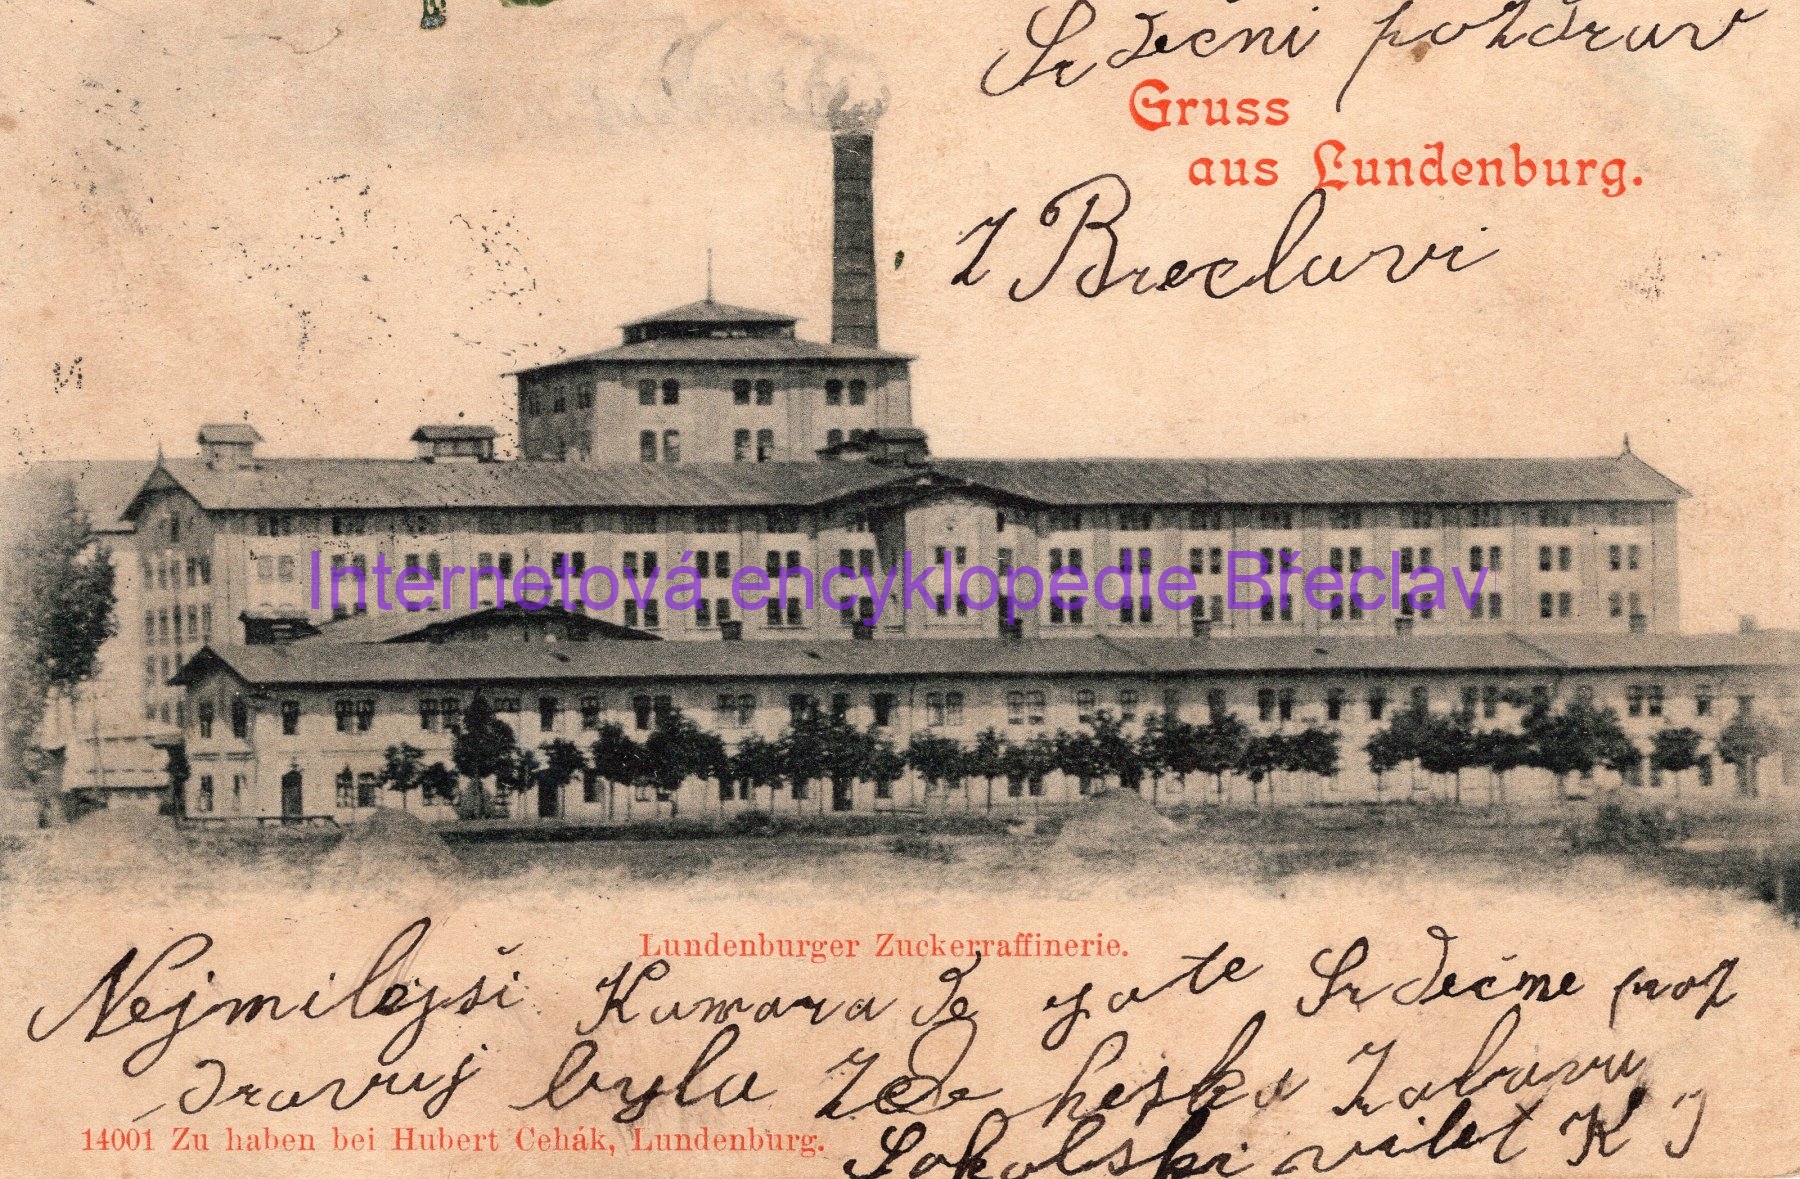 Srdečni pozdrav
Gruss
aus Lundenburg.
z Breclavi
Internetová encyklopedie Břeclav
Lundenburger Zuckerraffinerie.
Nejmilejši Kamarade Srdečne poz
dravuj byla zde heska zabava
14001 Zu haben bei Hubert Cehák, Lundenburg.
Sokolski vilet K J